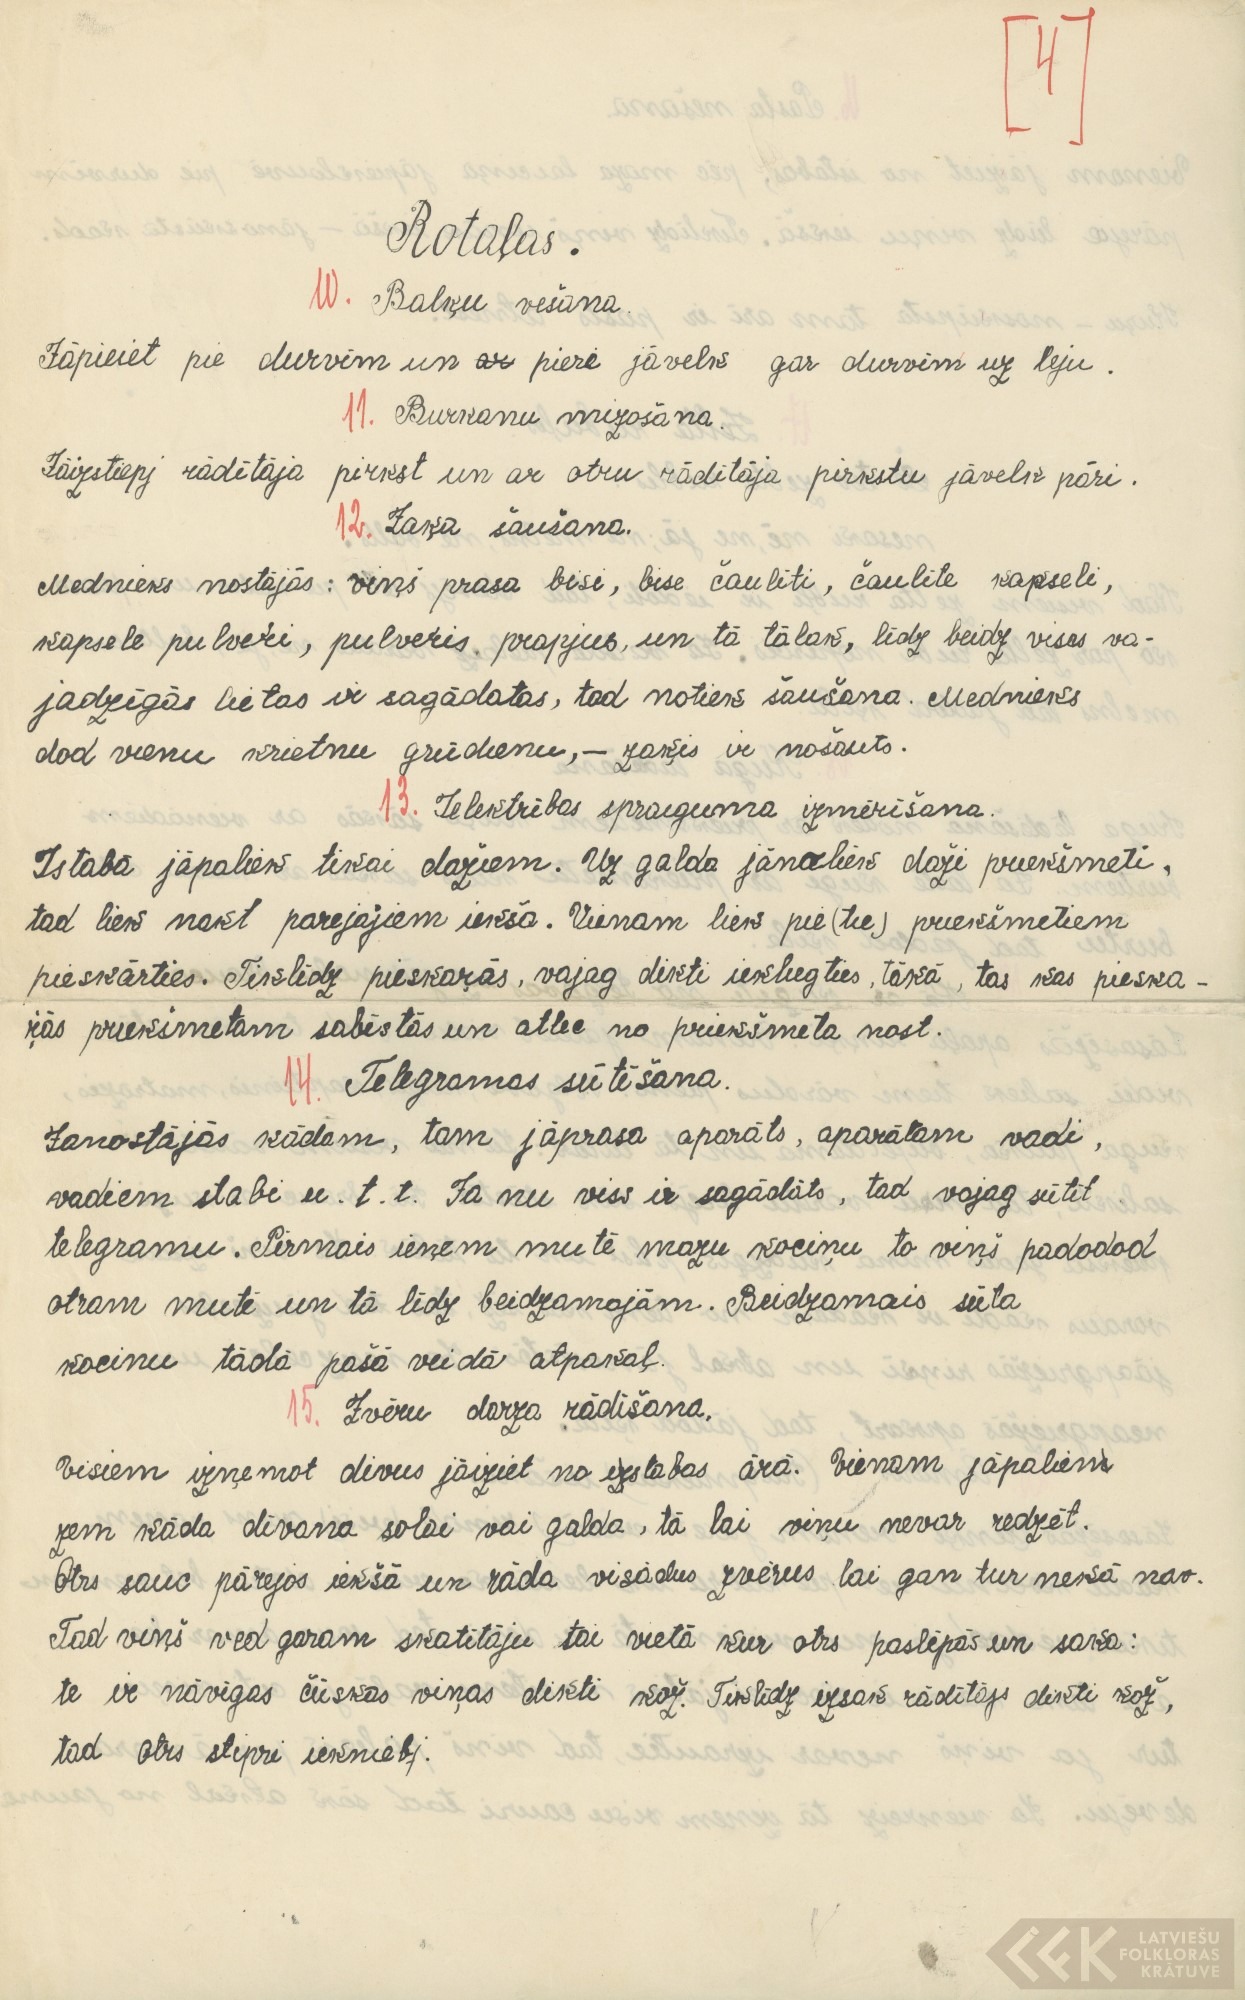 [4]
Rotaļas.
10. Baļķu vešana.
Jāpieiet pie durvīm un ar pieri jāvelk gar durvīm uz leju.
11. Burkanu mizošana.
Jāizstiepj rādītāja pirkst un ar otru rādītāja pirkstu jāvelk pāri.
12. Zaķa šaušana.
Mednieks nostājās: viņš prasa bisi, bise čaulīti, čaulīte kapseli,
kapsele pulveŗi, pulveŗis propjus, un tā tālak, līdz beidz visas va-
jadzīgās lietas ir sagādatas, tad notiek šaušana. Mednieks
dod vienu krietnu grūdienu, – zaķis ir nošauts.
13. Jelektrības spraiguma izmērīšana.
Istabā jāpaliek tikai dažiem. Uz galda jānoliek daži priekšmeti,
tad liek nakt parejajiem iekša. Vienam liek pie (tie) priekšmetiem
pieskārties. Tiklīdz pieskaŗās, vajag dikti iekliegties, tākā, tas kas pieska-
ŗās priekšmetam sabīstās un atlec no priekšmeta nost.
14. Telegramas sūtīšana.
Janostājās kādam, tam jāprasa aparāts, aparātam vadi,
vadiem stabi u. t. t. Ja nu viss ir sagādāts, tad vajag sūtīt
telegramu. Pirmais ieņem mutē mazu kociņu to viņš padodod
otram mutē un tā līdz beidzamajām. Beidzamais sūta
kociņu tādā pašā veidā atpakaļ.
15. Zvēru darza rādīšana.
Visiem izņemot divus jāiziet no izstabas ārā. Vienam jāpalien
zem kāda dīvana solai vai galda, tā lai viņu nevar redzēt.
Otrs sauc pārejos iekšā un rāda visādus zvērus lai gan tur nekā nav.
Tad viņš ved garam skatītāju tai vietā kur otrs paslēpās un saka:
te ir nāvīgas čūskas viņas dikti kož. Tiklīdz izsak rādītājs dikti kož,
tad otrs stipri iekniebj.
LATVIEŠU
FOLKLORAS
KRĀTUVE